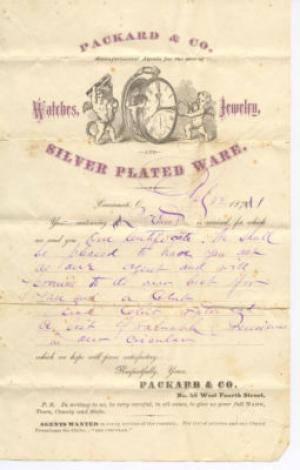 PACKARD & CO.
Agents for the sale of
Watches, Jewelry,
AND
SILVER PLATED WARE.
Cincinnati, O. 187
Your is received, for which
we send you One Certificate. We shall
be pleased to have you act
as our agent and will
to do our best for
you and a Club
Club
a list of valuable Premiums
in our Circular
which we hope will prove satisfactory.
Respectfully, Yours,
PACKARD & CO.
No. 56 West Fourth Street.
P. S. In writing to us, be very careful, in all cases, to give us your full NAME,
Town, County and State.
AGENTS WANTED in every section of the country. For list of articles and our
Premiums for Clubs, "SEE CIRCULAR."